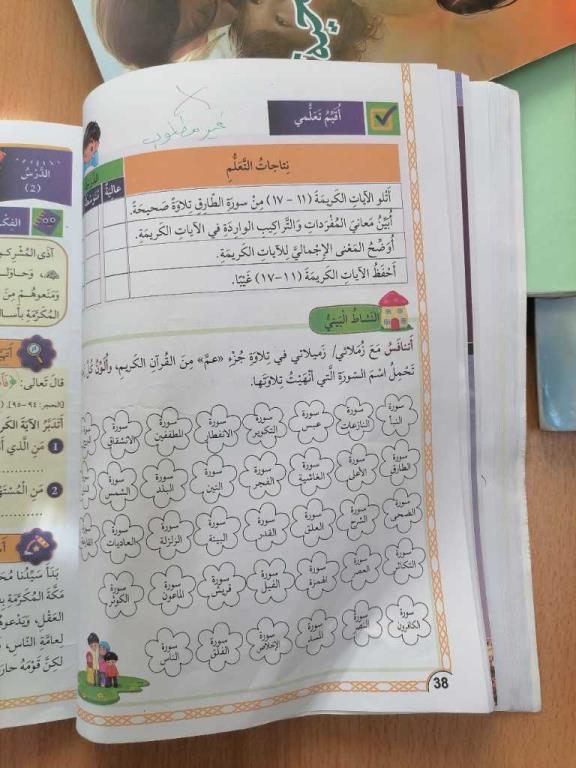 غير مطلوب
أُقَيِّمُ تَعَلُّمي
نِتاجاتُ التَّعَلُّمِ
عالِيَةٌ
أَتْلو الآياتِ الكَريمَةَ (١١ - ١٧) مِنْ سورَةِ الطّارِقِ تِلاوَةً صَحيحَةً.
أُبَيِّنُ مَعانِيَ المُفْرَداتِ وَالتَّراكيبِ الوارِدَةِ في الآياتِ الكَريمَةِ.
أُوَضِّحُ المَعْنى الإِجْمالِيَّ لِلآياتِ الكَريمَةِ.
أَحْفَظُ الآياتِ الكَريمَةَ (١١-١٧) غَيْبًا.
النَّشاطُ البَيْتِيُّ
أَتَنافَسُ مَعَ زُمَلائي/ زَميلاتي في تِلاوَةِ جُزْءِ «عمَّ» مِنَ القُرآنِ الكَريمِ، وأُلَوِّنُ كُلَّ
تَحْمِلُ اسْمَ السّورَةِ الَّتي أَنْهَيْتُ تِلاوَتَها.
سورة النبأ سورة النازعات سورة عبس سورة التكوير سورة الانفطار سورة المطففين سورة الانشقاق
سورة الطارق سورة الأعلى سورة الغاشية سورة الفجر سورة التين سورة البلد سورة الشمس
سورة الضحى سورة الشرح سورة العلق سورة القدر سورة البينة سورة الزلزلة سورة العاديات
سورة التكاثر سورة العصر سورة الهمزة سورة الفيل سورة قريش سورة الماعون سورة الكوثر
سورة الكافرون سورة النصر سورة المسد سورة الإخلاص سورة الفلق سورة الناس
38
الدَّرْسُ
(2)
آذى المُشْرِكو
وَحاوَلـ
وَمَنَعوهُـمْ مِنَ
المُكَرَّمَةِ بِأَسال
قالَ تَعالى:
[الحجر: ٩٤-٩٥].
أَتَدَبَّرُ الآيَةَ الكَر
1 مَنِ الَّذي أَ
2 مَنِ الْمُسْتَهْ
بَدَأَ سَيِّدُنا مُحَـ
مَكَّةَ المُكَرَّمَةِ
العَقْلَ، وَيَدْعوهُـ
لِعامَّةِ النّاسِ،
لكِنَّ قَوْمَهُ حارَ